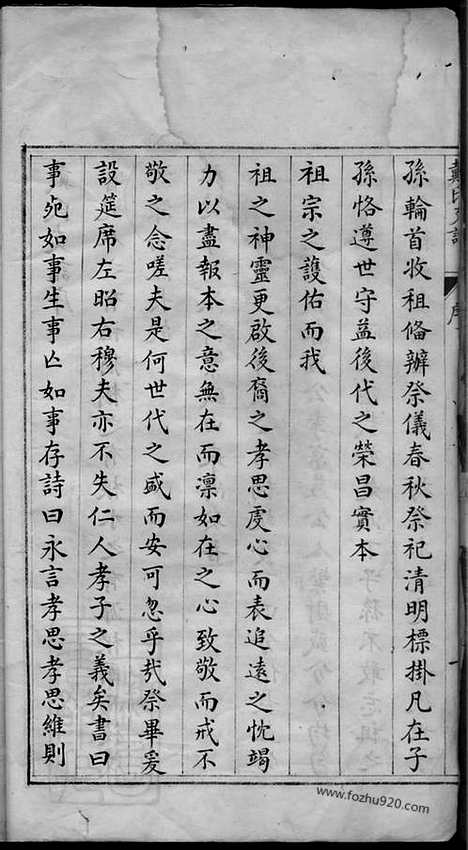 孫輪首收租偹辦祭儀春秋祭祀清明標掛凡在子
孫恪遵世守益後代之榮昌實本
祖宗之護佑而我
祖之神靈更啟後裔之孝思虔心而表追遠之忱竭
力以盡報本之意無在而凛如在之心致敬而戒不
敬之念嗟夫是何世代之盛而安可忽乎㢤祭畢爰
設筵席左昭右穆夫亦不失仁人孝子之義矣書曰
事宛如事生事亾如事存詩曰永言孝思孝思維則
www.fozhu920.com